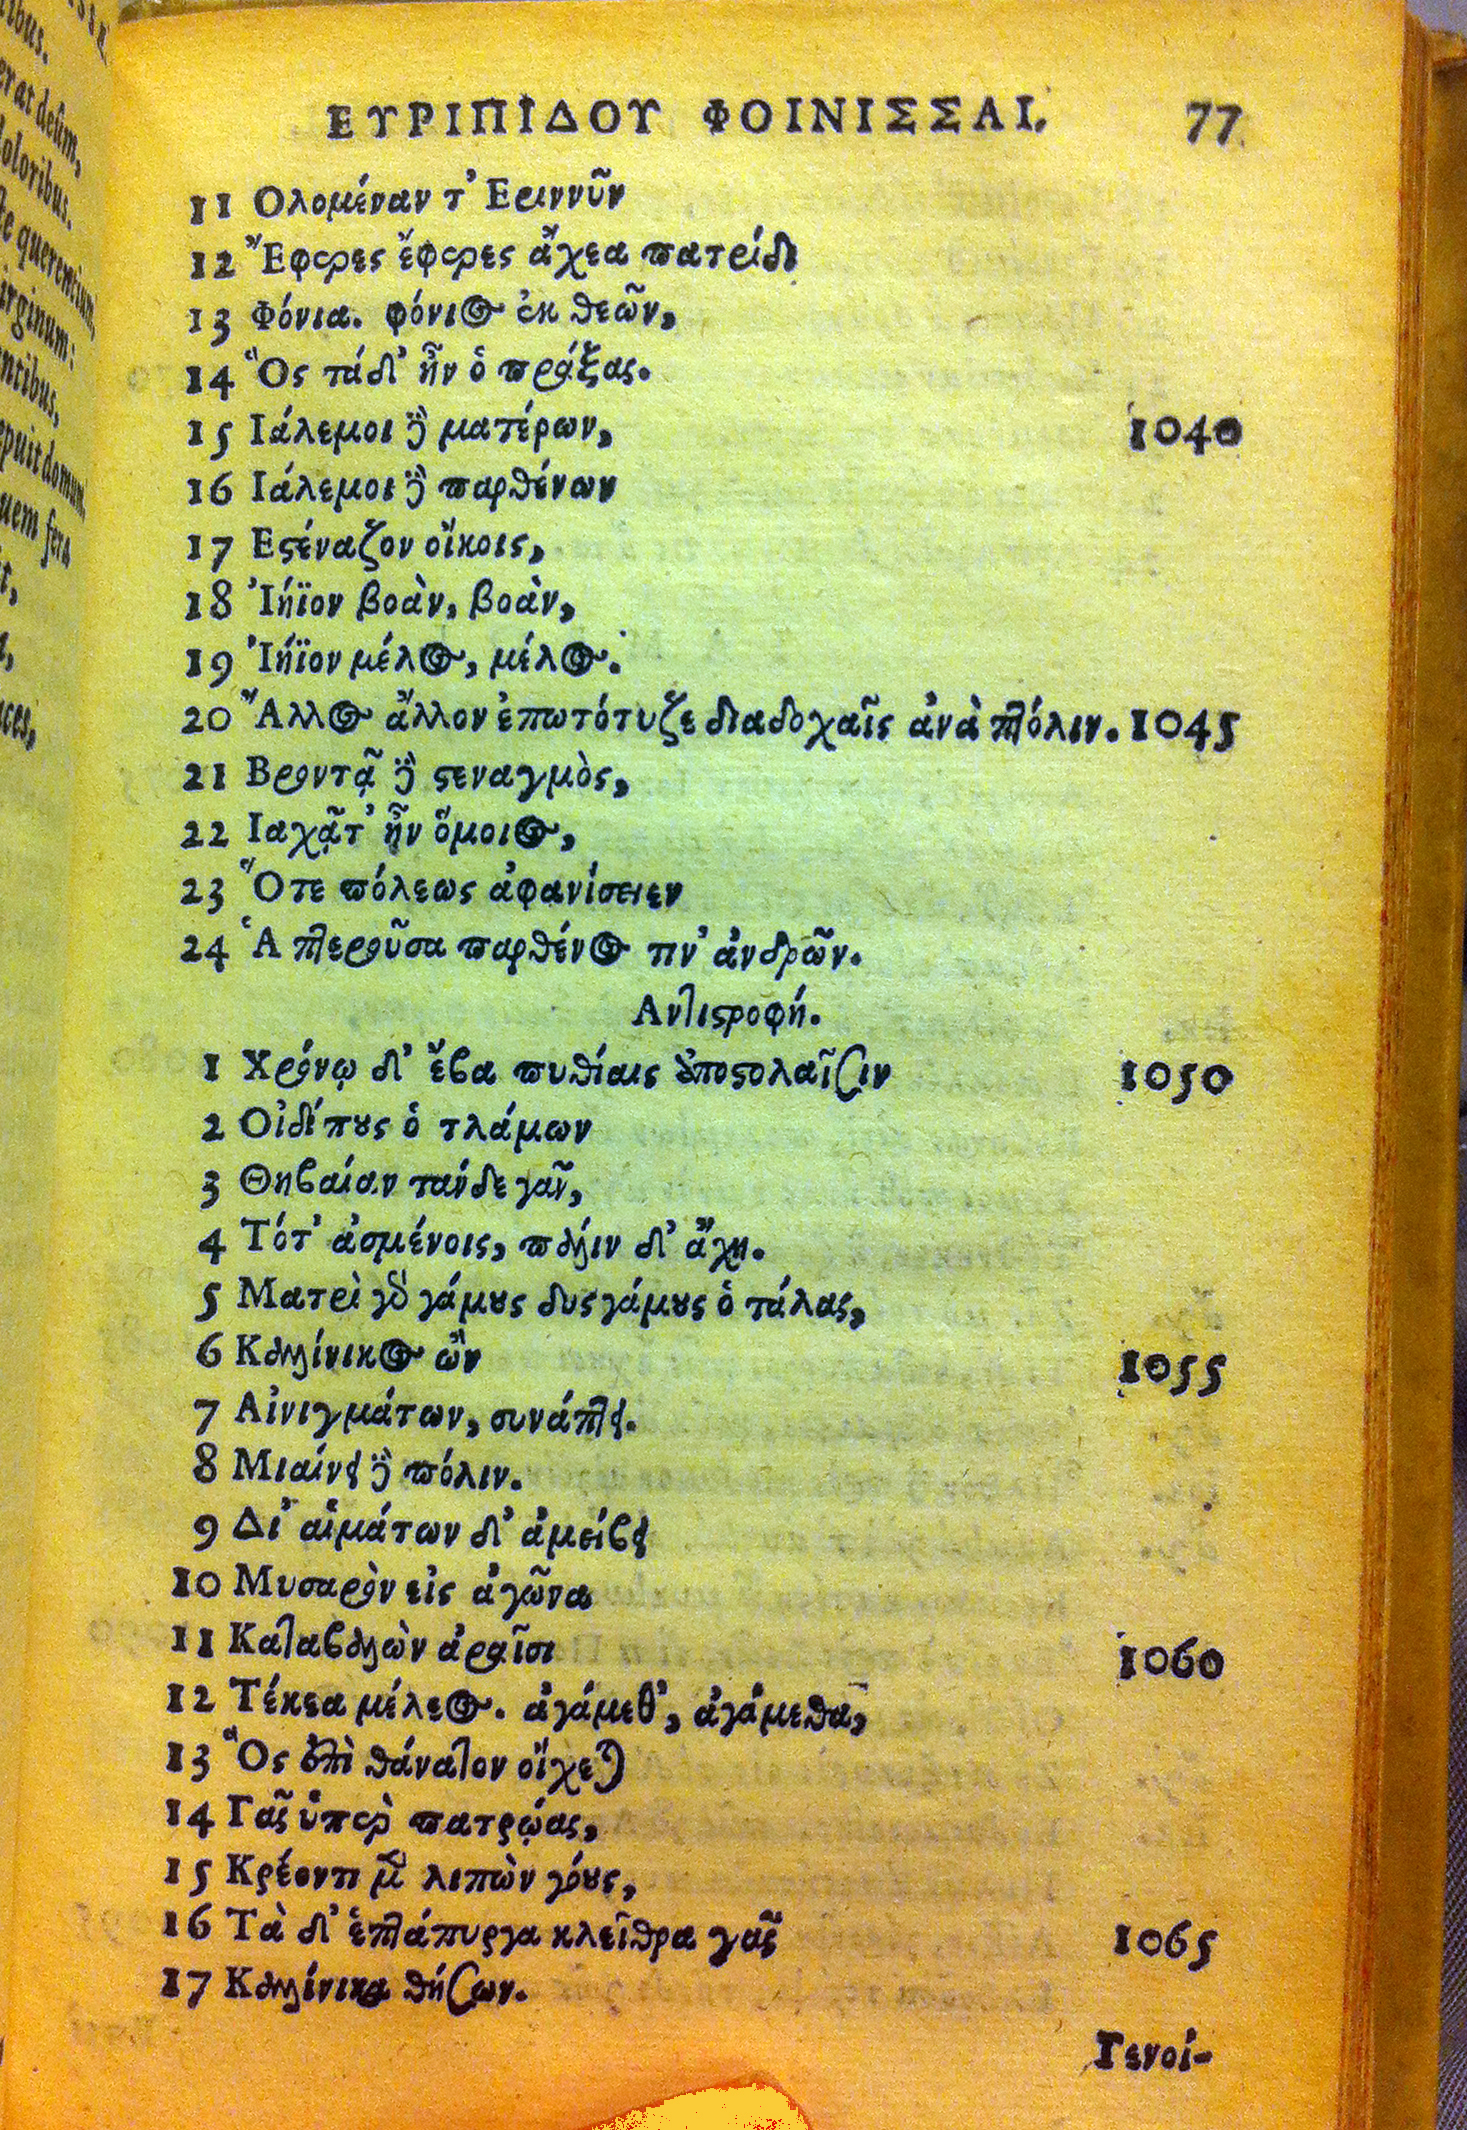 ΕΥΡΙΠΙΔΟΥ ΦΟΙΝΙΣΣΑΙ. 77
11 Ολομέναν τ' Εριννῦν
12 Ἔφερες ἔφερες ἄχεα πατρίδι
13 Φόνια. φόνιος ἐκ θεῶν,
14 Ὃς τάδ' ἦν ὁ πράξας.
15 Ιάλεμοι δὲ ματέρων, 1040
16 Ιάλεμοι δὲ παρθένων
17 Εστέναζον οἴκοις,
18 Ἰήϊον βοὰν, βοὰν,
19 Ἰήϊον μέλος, μέλος.
20 Ἄλλος ἄλλον ἐπωτότυζε διαδοχαῖς ἀνὰ πτόλιν. 1045
21 Βροντᾷ δὲ στεναγμὸς,
22 Ιαχᾷτ' ἦν ὅμοιος,
23 Ὅτε πόλεως ἀφανίσειεν
24 Ἁ πτεροῦσα παρθένος τιν' ἀνδρῶν.
Αντιστροφή.
1 Χρόνῳ δ' ἔβα πυθίαις ἀποστολαῖσιν 1050
2 Οἰδίπους ὁ τλάμων
3 Θηβαίαν τάνδε γᾶν,
4 Τότ' ἀσμένοις, πάλιν δ' ἄχη.
5 Ματρὶ γὰρ γάμους δυσγάμους ὁ τάλας,
6 Καλλίνικος ὢν 1055
7 Αἰνιγμάτων, συνάπτει.
8 Μιαίνει δὲ πόλιν.
9 Δι' αἱμάτων δ' ἀμείβει
10 Μυσαρὸν εἰς ἀγῶνα
11 Καταβαλὼν ἀραῖσι 1060
12 Τέκεα μέλεος. ἀγάμεθ', ἀγάμεθα,
13 Ὃς ἐπὶ θάνατον οἴχεται
14 Γᾶς ὑπὲρ πατρῴας,
15 Κρέοντι μὲν λιπὼν γόους,
16 Τὰ δ' ἑπτάπυργα κλεῖθρα γᾶς 1065
17 Καλλίνικα θήσων.
Γενοί-